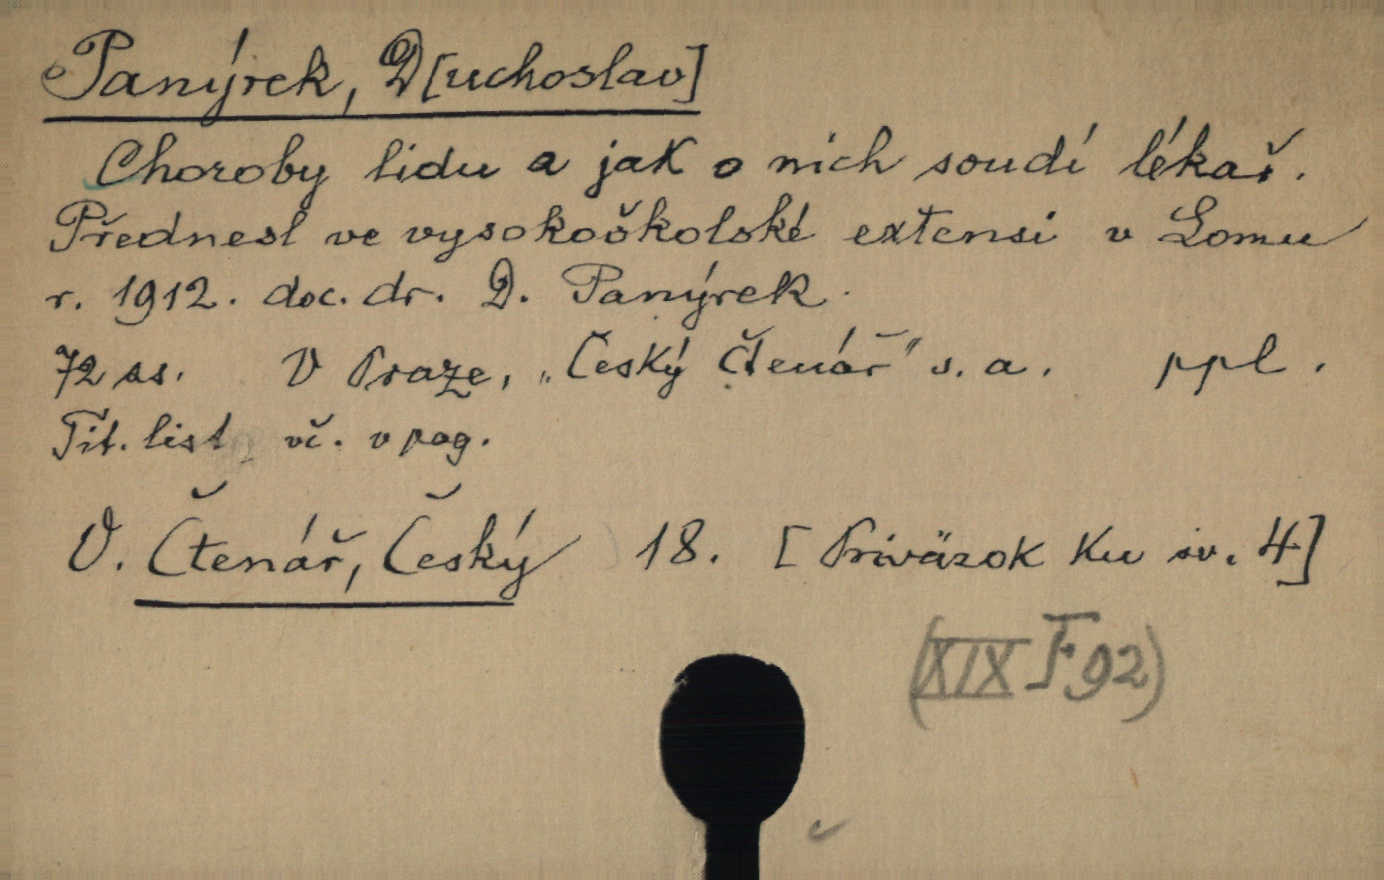 Panýrek, D[uchoslav]
Choroby lidu a jak o nich soudí lékař.
Přednesl ve vysokoškolské extensi v Lomu
r. 1912. doc. dr. D. Panýrek.
72 ss. V Praze, „Český čtenář" s. a. ppl.
Tit. list vč. v pag.
V. Čtenář, Český 18. [Priväzok ku sv. 4]
(XIX F 92)